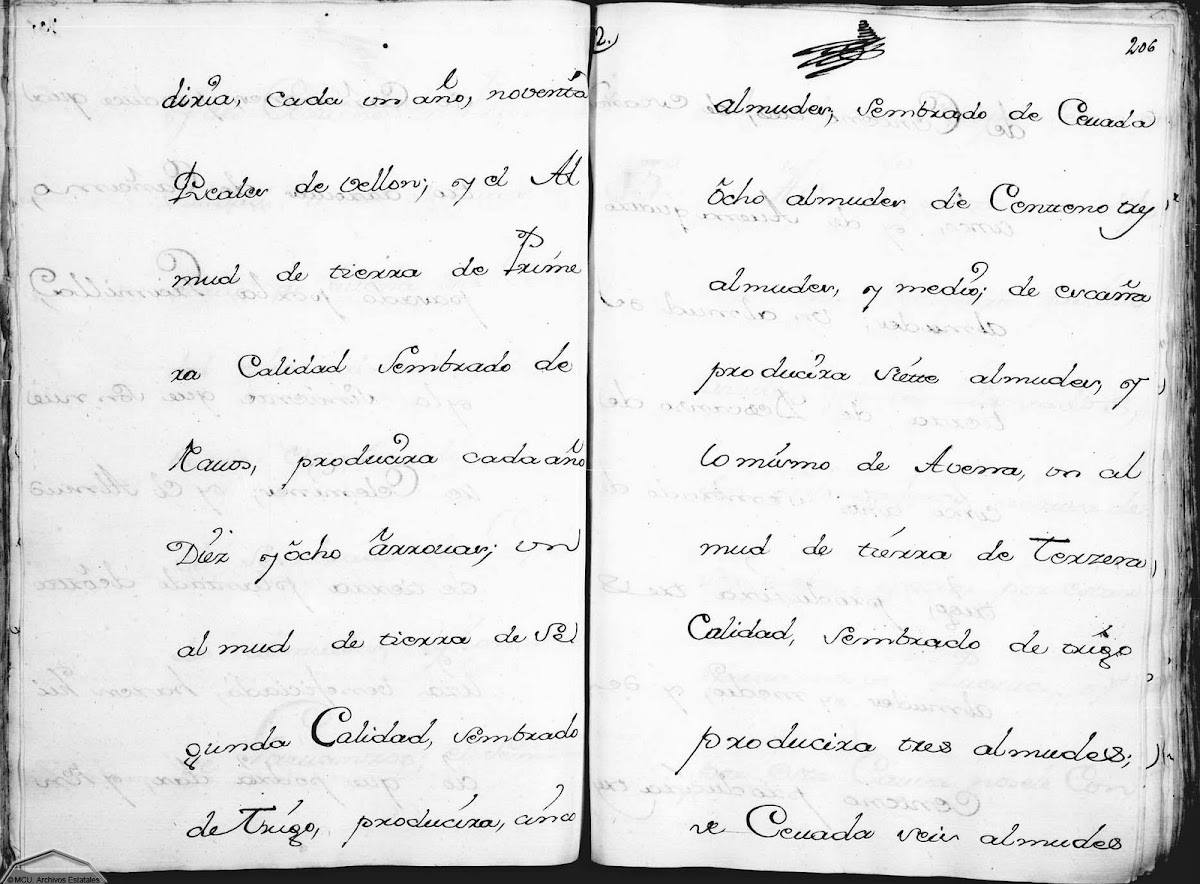 diria, cada un año, noventa
Reales de vellon; y el Al
mud de tierra de Prime
ra Calidad sembrado de
Nauos, producira cada año
Diez y ocho arrouas; un
almud de tierra de Se
gunda Calidad, sembrado
de Trigo, producira, cinco
2.
206
almudes; sembrado de Ceuada
ocho almudes de Centeno trey
almudes, y medio; de escaña
producira siette almudes, y
lo mismo de Avena, un al
mud de tierra de Terzera
Calidad, sembrado de trigo
producira tres almudes;
de Ceuada seis almudes
© MCU. Archivos Estatales